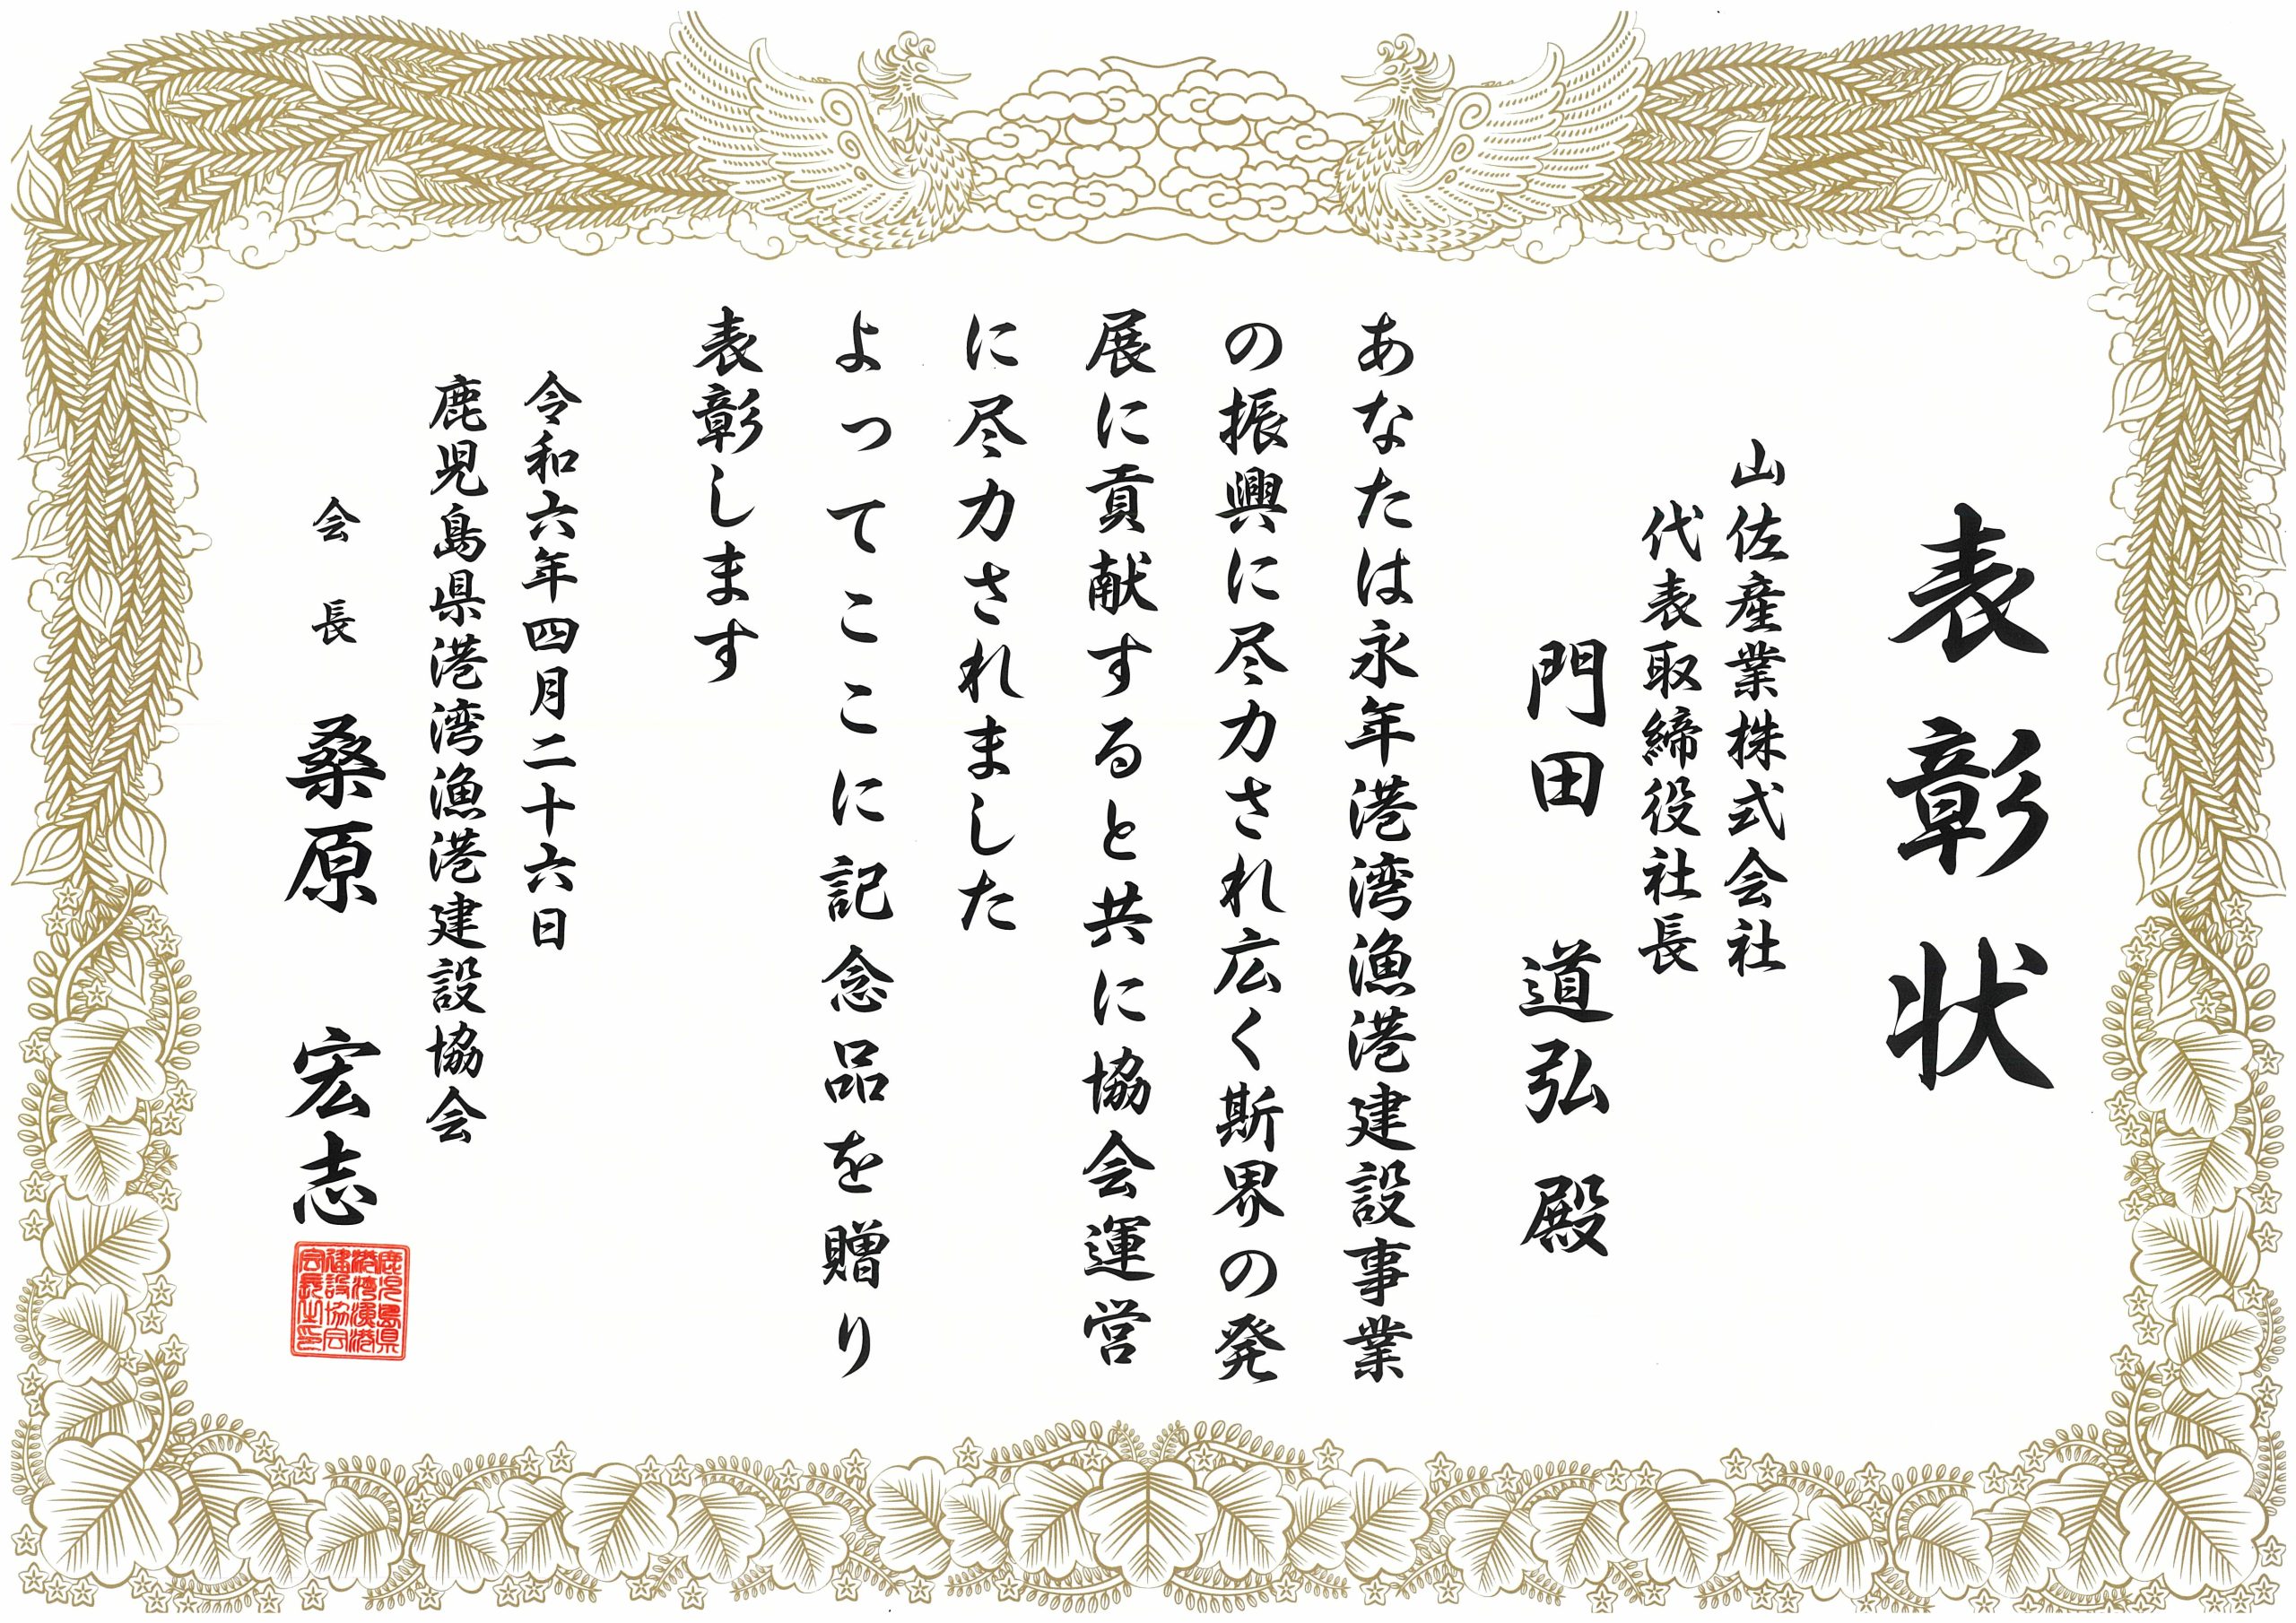 表彰状
山佐産業株式会社
代表取締役社長
門田 道弘 殿
あなたは永年港湾漁港建設事業
の振興に尽力され広く斯界の発
展に貢献すると共に協会運営
に尽力されました
よってここに記念品を贈り
表彰します
令和六年四月二十六日
鹿児島県港湾漁港建設協会
会長 桑原 宏志
鹿児島県
港湾漁港
建設協会
会長之印